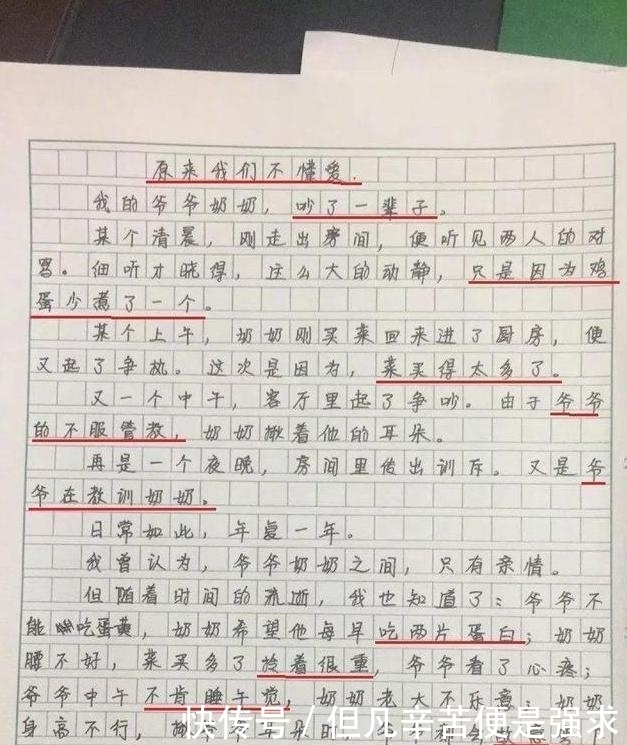 原来我们不懂爱.
我的爷爷奶奶，吵了一辈子。
某个清晨，刚走出房间，便听见两人的对
骂。细听才晓得，这么大的动静，只是因为鸡
蛋少煮了一个。
某个上午，奶奶刚买菜回来进了厨房，便
又起了争执。这次是因为，菜买得太多了。
又一个中午，客厅里起了争吵。由于爷爷
的不服管教，奶奶揪着他的耳朵。
再是一个夜晚，房间里传出训斥。又是爷
爷在教训奶奶。
日常如此，年复一年。
我曾认为，爷爷奶奶之间，只有亲情。
但随着时间的流逝，我也知道了：爷爷不
能吃蛋黄，奶奶希望他每早吃两片蛋白；奶奶
腰不好，菜买多了拎着很重，爷爷看了心疼；
爷爷中午不肯睡午觉，奶奶老大不乐意；奶奶
身高不行，
快传号 / 但凡辛苦便是强求